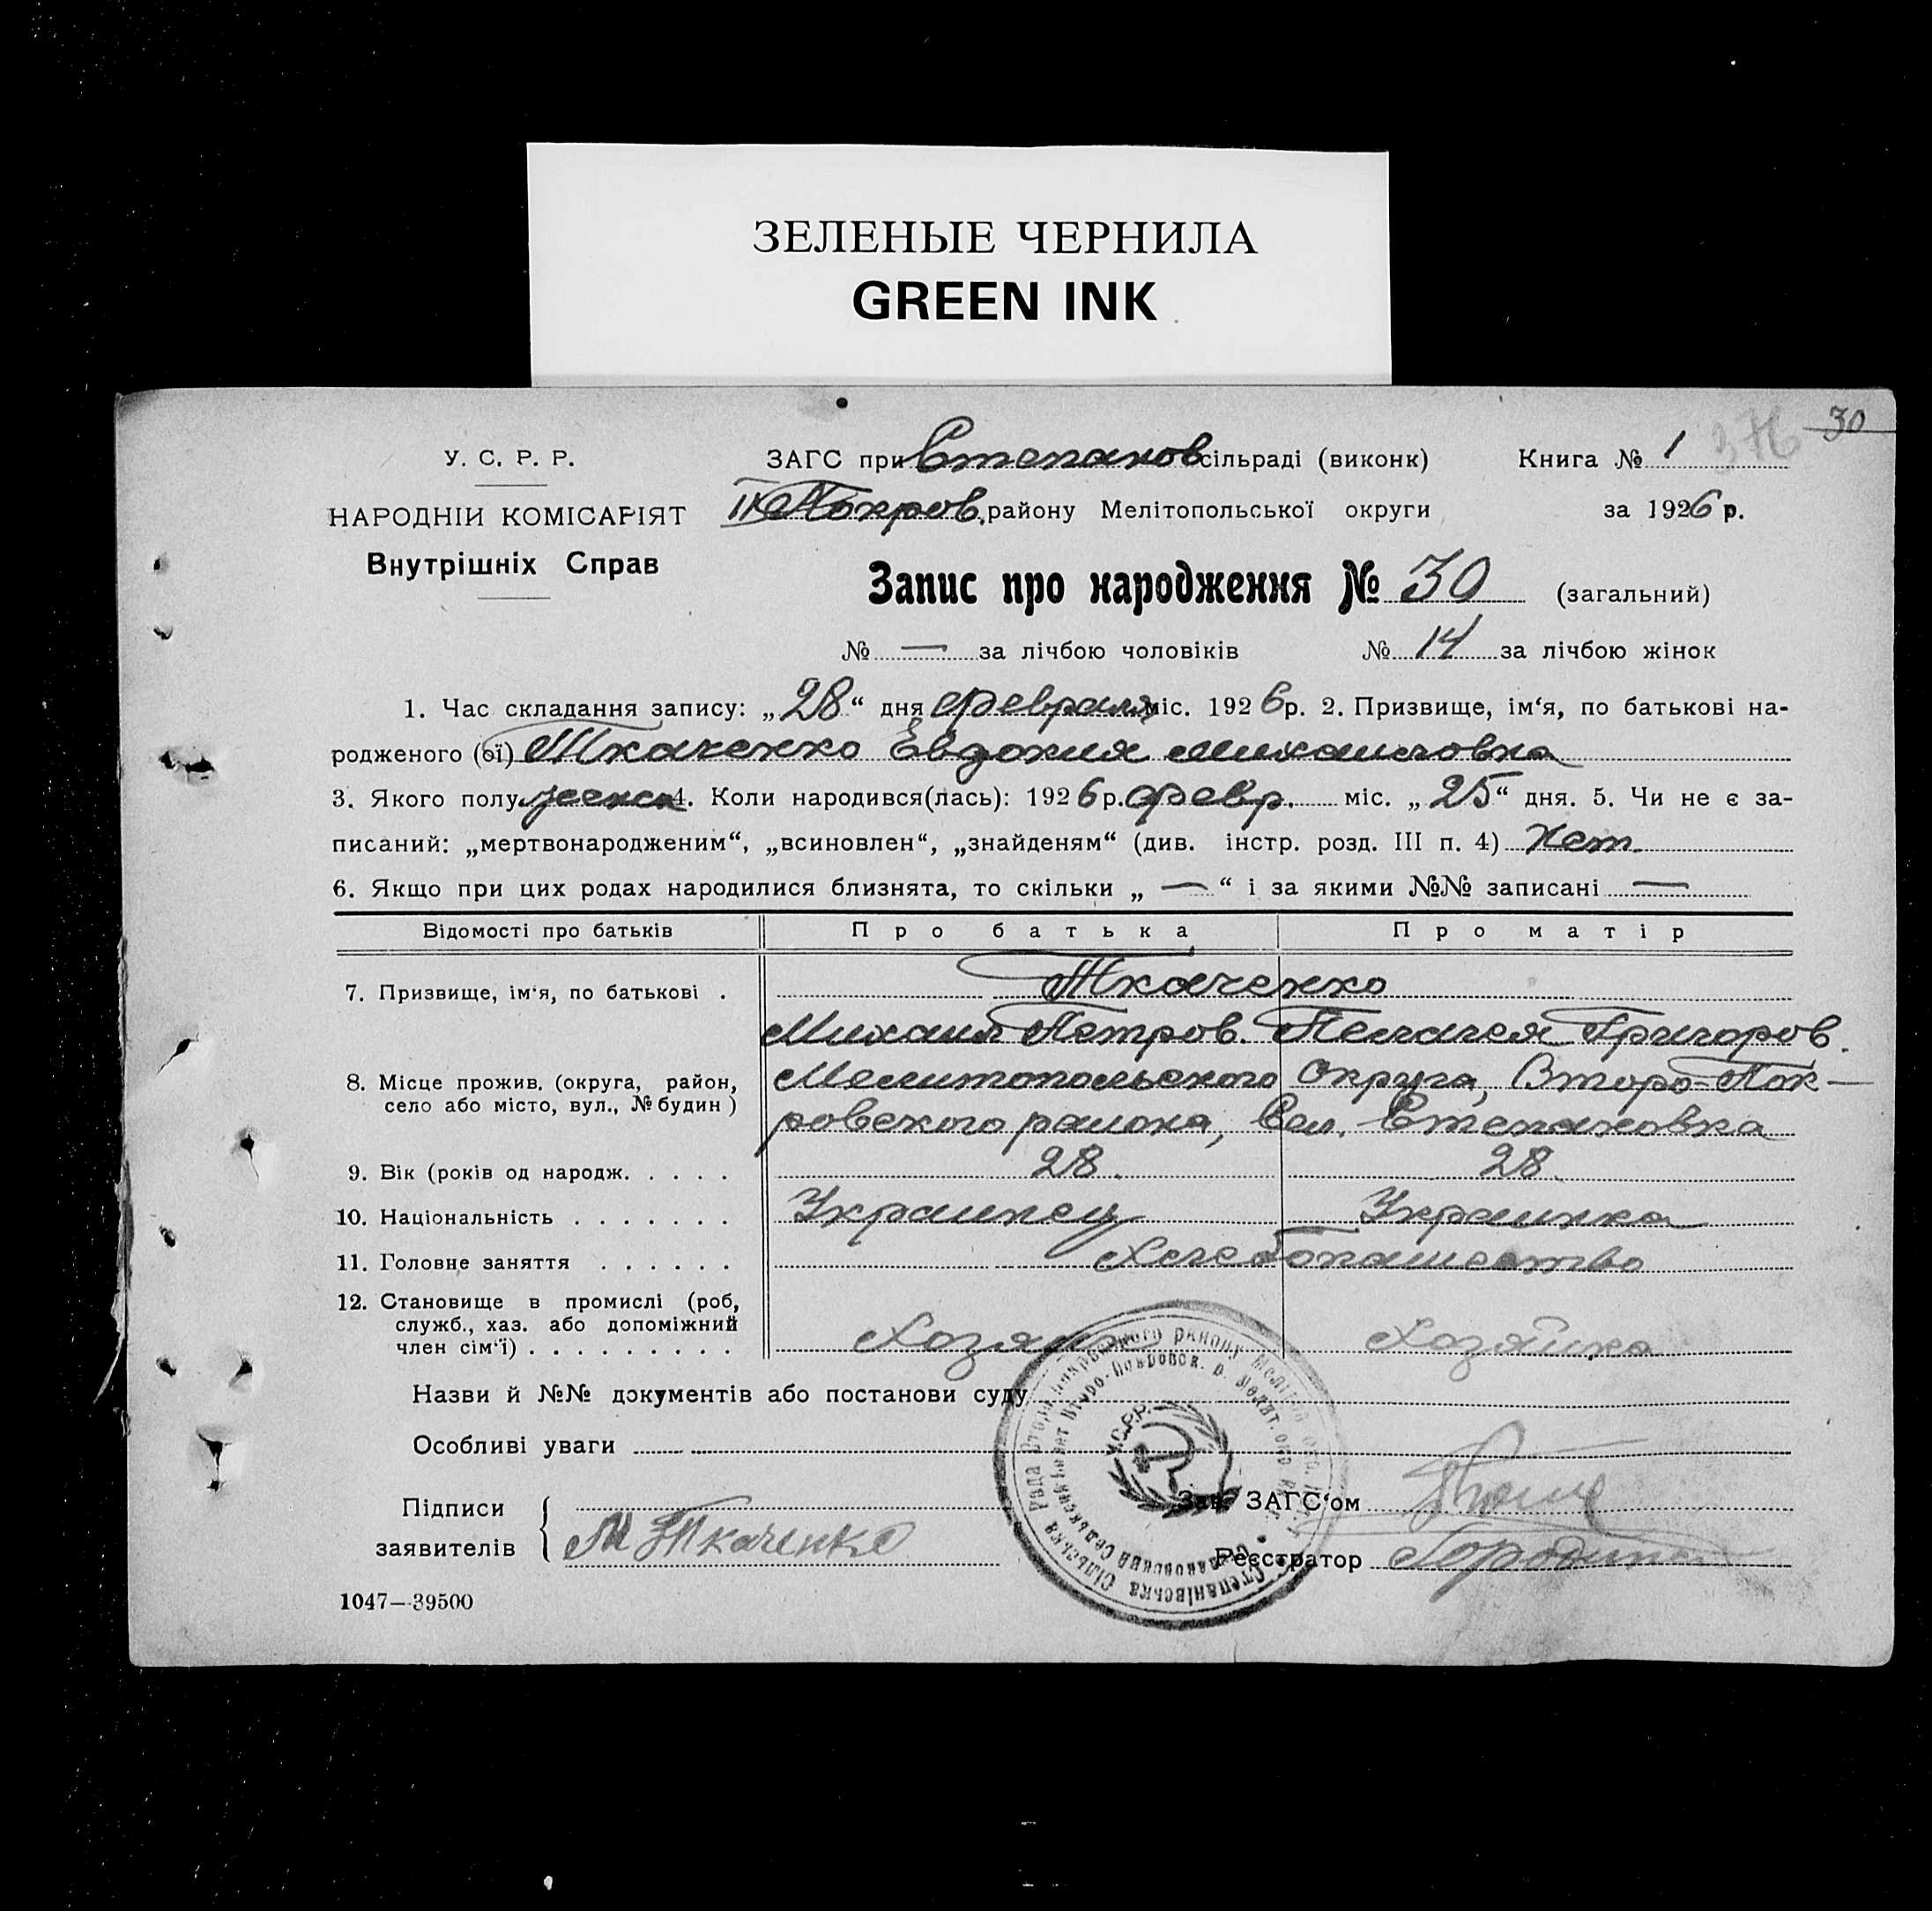 ЗЕЛЕНЫЕ ЧЕРНИЛА
GREEN INK
376 30
У. С. Р. Р.
ЗАГС при Степанов сільраді (виконк) Книга № 1
НАРОДНІЙ КОМІСАРІЯТ
II Покров. району Мелітопольської округи за 1926 р.
Внутрішніх Справ
Запис про народження № 30 (загальний)
№ — за лічбою чоловіків № 14 за лічбою жінок
1. Час складання запису: „28“ дня февраля міс. 1926 р. 2. Призвище, ім‘я, по батькові на-
родженого (ої) Ткаченко Евдокия Михаиловна
3. Якого полу женск 4. Коли народився(лась): 1926 р. февр. міс. „25“ дня. 5. Чи не є за-
писаний: „мертвонародженим“, „всиновлен“, „знайденям“ (див. інстр. розд. III п. 4) Нет.
6. Якщо при цих родах народилися близнята, то скільки „—“ і за якими №№ записані —
Відомості про батьків Про батька Про матір
7. Призвище, ім‘я, по батькові . Ткаченко
Михаил Петров. Пелагея Григоров.
8. Місце прожив. (округа, район, Мелитопольского Округа, Второ-Пок-
село або місто, вул., № будин) ровского района, Сел. Степановка
9. Вік (років од народж. . . . . 28. 28.
10. Національність . . . . . . . Украинец Украинка
11. Головне заняття . . . . . . Хлебопашество
12. Становище в промислі (роб,
служб., хаз. або допоміжний
член сім‘ї) . . . . . . . . . Хозяин Хозяйка
Назви й №№ документів або постанови суду
Особливі уваги
У.С.Р.Р.
Степанівська Сільська Рада Второ-Покровського району
Степановский Сельский Совет Второ-Покровск. р. Мелит. окр.
Підписи
Зав. ЗАГС‘ом
заявителів М Ткаченко
Реєстратор
1047—39500